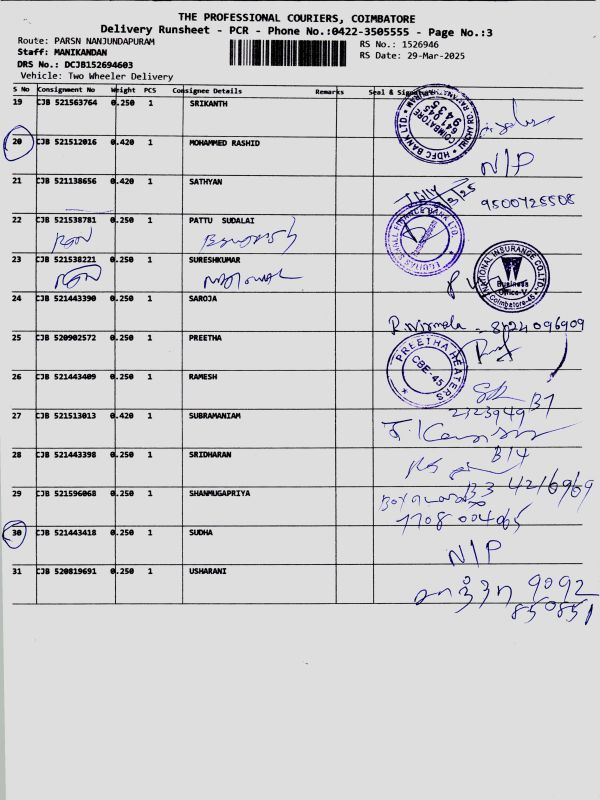 THE PROFESSIONAL COURIERS, COIMBATORE
Delivery Runsheet - PCR - Phone No.:0422-3505555 - Page No.:3
Route: PARSN NANJUNDAPURAM
RS No.: 1526946
Staff: MANIKANDAN
RS Date: 29-Mar-2025
DRS No.: DCJB152694603
Vehicle: Two Wheeler Delivery
S No Consignment No Weight PCS Consignee Details Remarks Seal & Signature
19 CJB 521563764 0.250 1 SRIKANTH
HDFC BANK LTD
COIMBATORE
641 045
9435
20 CJB 521512016 0.420 1 MOHAMMED RASHID
N/P
21 CJB 521138656 0.420 1 SATHYAN
9500725508
22 CJB 521538781 0.250 1 PATTU SUDALAI
FINANCE BANK LTD.
23 CJB 521538221 0.250 1 SURESHKUMAR
NATIONAL INSURANCE CO.LTD.
Business
Office-V
Coimbatore-45
24 CJB 521443390 0.250 1 SAROJA
R. Nirmala - 8124096909
25 CJB 520902572 0.250 1 PREETHA
PREETHA HEATERS
CBE-45
26 CJB 521443409 0.250 1 RAMESH
B7
2123949
27 CJB 521513013 0.420 1 SUBRAMANIAM
28 CJB 521443398 0.250 1 SRIDHARAN
B14
29 CJB 521596068 0.250 1 SHANMUGAPRIYA
B3 4216969
7708004065
30 CJB 521443418 0.250 1 SUDHA
N/P
31 CJB 520819691 0.250 1 USHARANI
9092
850851